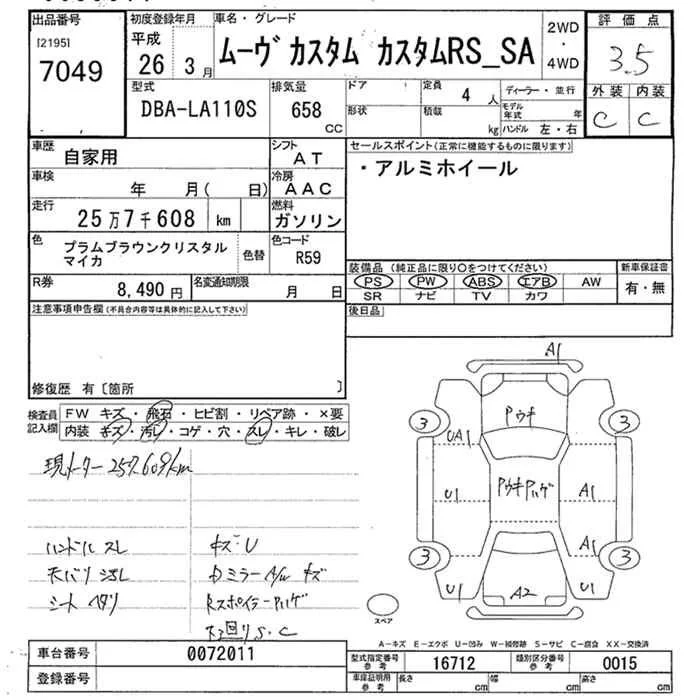 出品番号
[2195]
7049
初度登録年月
平成
26 3月
車名・グレード
ムーヴ カスタム カスタムRS_SA
2WD
・
4WD
評価点
3.5
外装 内装
C C
型式
DBA-LA110S
排気量
658
CC
ドア
形状
定員
4人
積載
kg
ディーラー・並行
モデル年式 年
ハンドル 左・右
車歴
自家用
シフト
AT
車検
年 月( 日)
冷房
AAC
走行
25万7千608 km
燃料
ガソリン
色
プラムブラウンクリスタル
マイカ
色替
色コード
R59
R券
8,490円
名変通知期限
月 日
セールスポイント(正常に機能するものに限ります)
・アルミホイール
装備品(純正品に限り○をつけてください)
PS PW ABS エアB AW
SR ナビ TV カワ
新車保証書
有・無
後日品
注意事項申告欄(不具合内容等は具体的に記入して下さい)
修復歴 有〔箇所 〕
検査員
記入欄
FW キズ・飛石・ヒビ割・リペア跡・×要
内装 キズ・汚レ・コゲ・穴・スレ・キレ・破レ
現メーター257.608km
ハンドル スレ
天バリ 汚レ
シート ヘタリ
キズ・U
Dミラー A/W キズ
Rスポイラーハゲ
下回りS.C
A1
ワウキ
3
3
UA1
U1
ワウキハゲ
A1
A1
3
3
U1
A2
U1
スペア
A-キズ E-エクボ U-凹み W-補修跡 S-サビ C-腐食 XX-交換済
車台番号
0072011
登録番号
型式指定番号
参考
16712
類別区分番号
参考
0015
車庫証明用
参考
長さ cm
幅 cm
高さ cm